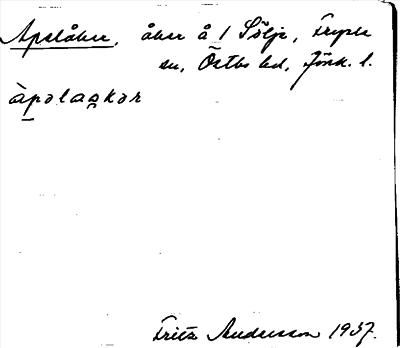 Apelåker, åker å 1 Sölje, Fryele
sn, Östbo hd, Jönk. l.
àpəlaəkər
Fritz Andersson 1937.